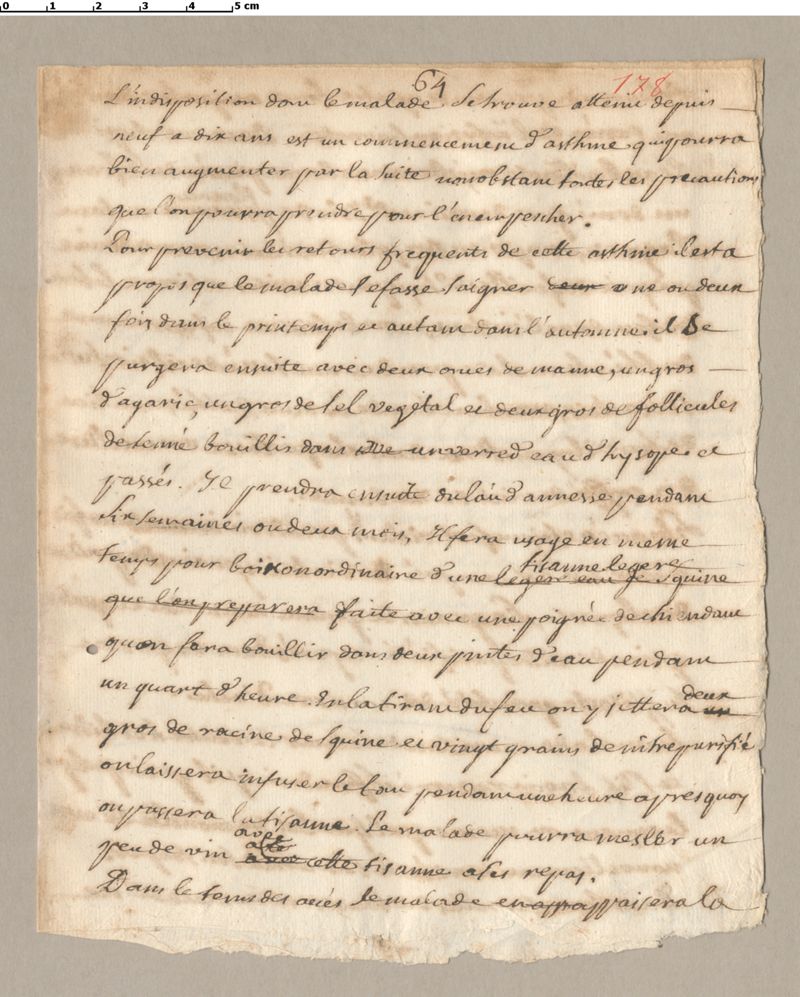 0 1 2 3 4 5 cm
64 178
L'indisposition dont le malade se trouve atteint depuis
neuf a dix ans est un commencement d'asthme qui pourra
bien augmenter par la suite nonobstant toutes les precautions
que l'on pourra prendre pour l'en empescher.
Pour prevenir les retours frequents de cette asthme il est a
propos que le malade se fasse saigner deux une ou deux
fois dans le printemps et autant dans l'automne. il se
purgera ensuite avec deux onces de manne, un gros
d'agaric, un gros de sel vegétal et deux gros de follicules
de senné bouillis dans un verre d'eau d'hysope et
passés. Il prendra ensuite du lait d'annesse pendant
six semaines ou deux mois. Il fera usage en mesme
tisanne legere
temps pour boisson ordinaire d'une legere eau de squine
que l'on preparera faite avec une poignée de chiendant
quon fara bouillir dans deux pintes d'eau pendant
deux
un quart d'heure. En la tirant du feu on y jettera un
gros de racine de squine et vingt grains de nitre purifié
on laissera infuser le tout pendant une heure apres quoy
on passera la tisanne. Le malade pourra mesler un
avec
peu de vin avec cette tisanne a ses repas.
Dans le tems des accés le malade en appaisera la